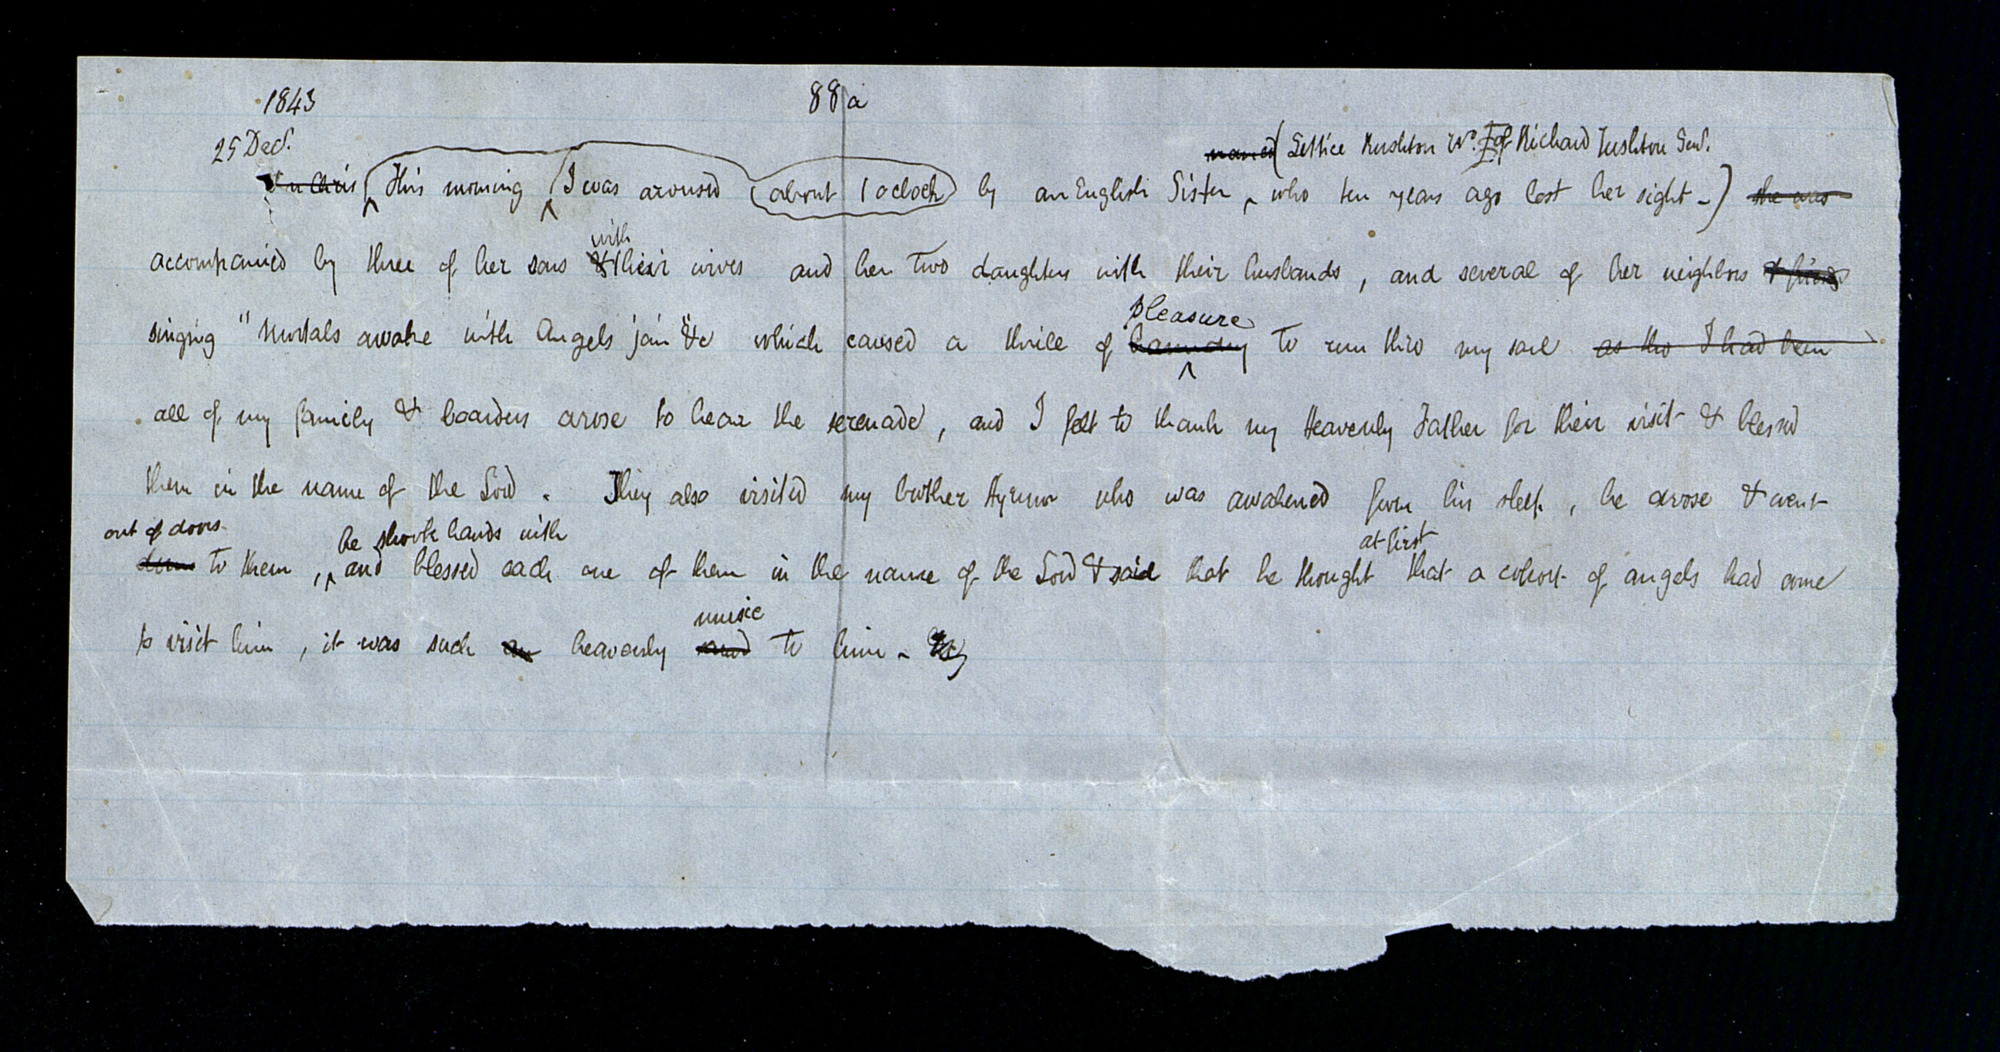 1843
88a
25 Decr.
named (Lettice Rushton Wr. of Richard Rushton Senr.
On Chris This morning (I was aroused about 1 oclock by an English Sister, who ten years ago lost her sight -) she was
with
accompanied by three of her sons & their wives and her two daughters with their husbands, and several of her neighbors & friends
pleasure
singing "Mortals awake with Angels join" &c which caused a thrill of harmony to run thro my soul as tho I had been
all of my family & boarders arose to hear the serenade, and I felt to thank my Heavenly Father for their visit & blessed
them in the name of the Lord. They also visited my brother Hyrum who was awakened from his sleep, he arose & went
out of doors he shook hands with at first
down to them, and blessed each one of them in the name of the Lord & said that he thought that a cohort of angels had come
music
to visit him, it was such an heavenly to him -